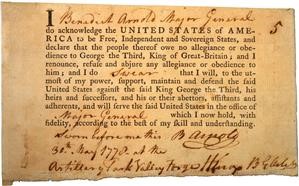 I Benedict Arnold Major General 5
do acknowledge the UNITED STATES of AME-
RICA to be Free, Independent and Sovereign States, and
declare that the people thereof owe no allegiance or obe-
dience to George the Third, King of Great-Britain; and I
renounce, refuse and abjure any allegiance or obedience to
him; and I do Swear that I will, to the ut-
most of my power, support, maintain and defend the said
United States against the said King George the Third, his
heirs and successors, and his or their abettors, assistants and
adherents, and will serve the said United States in the office of
Major General which I now hold, with
fidelity, according to the best of my skill and understanding.
Sworn before me this B Arnold
30th May 1778 at the
Artillery Park Valley Forge HKnox B G Artily